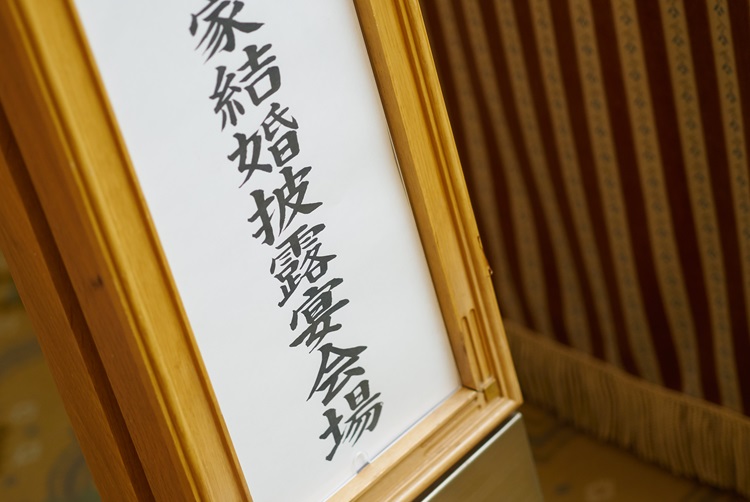 家結婚披露宴会場